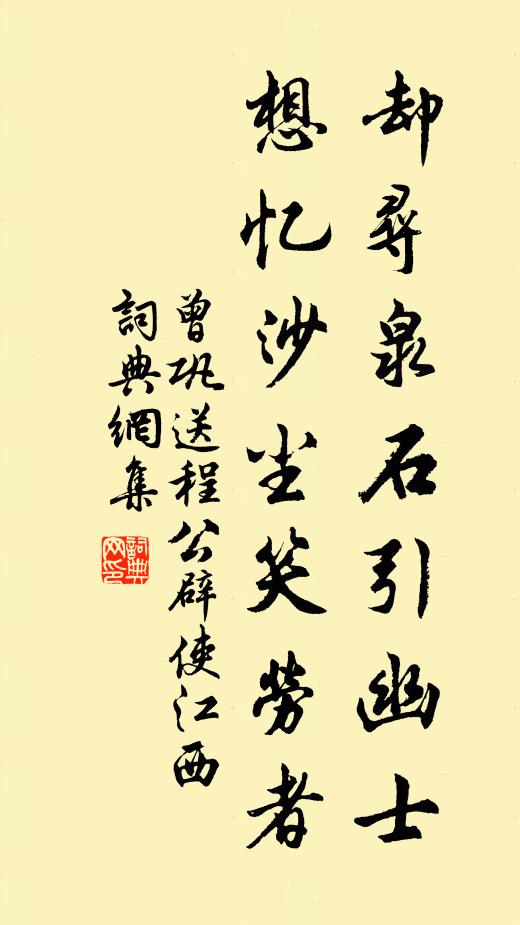 却尋泉石引幽士
想忆沙尘笑勞者
曾巩送程公辟使江西
詞典網集
詞典网印